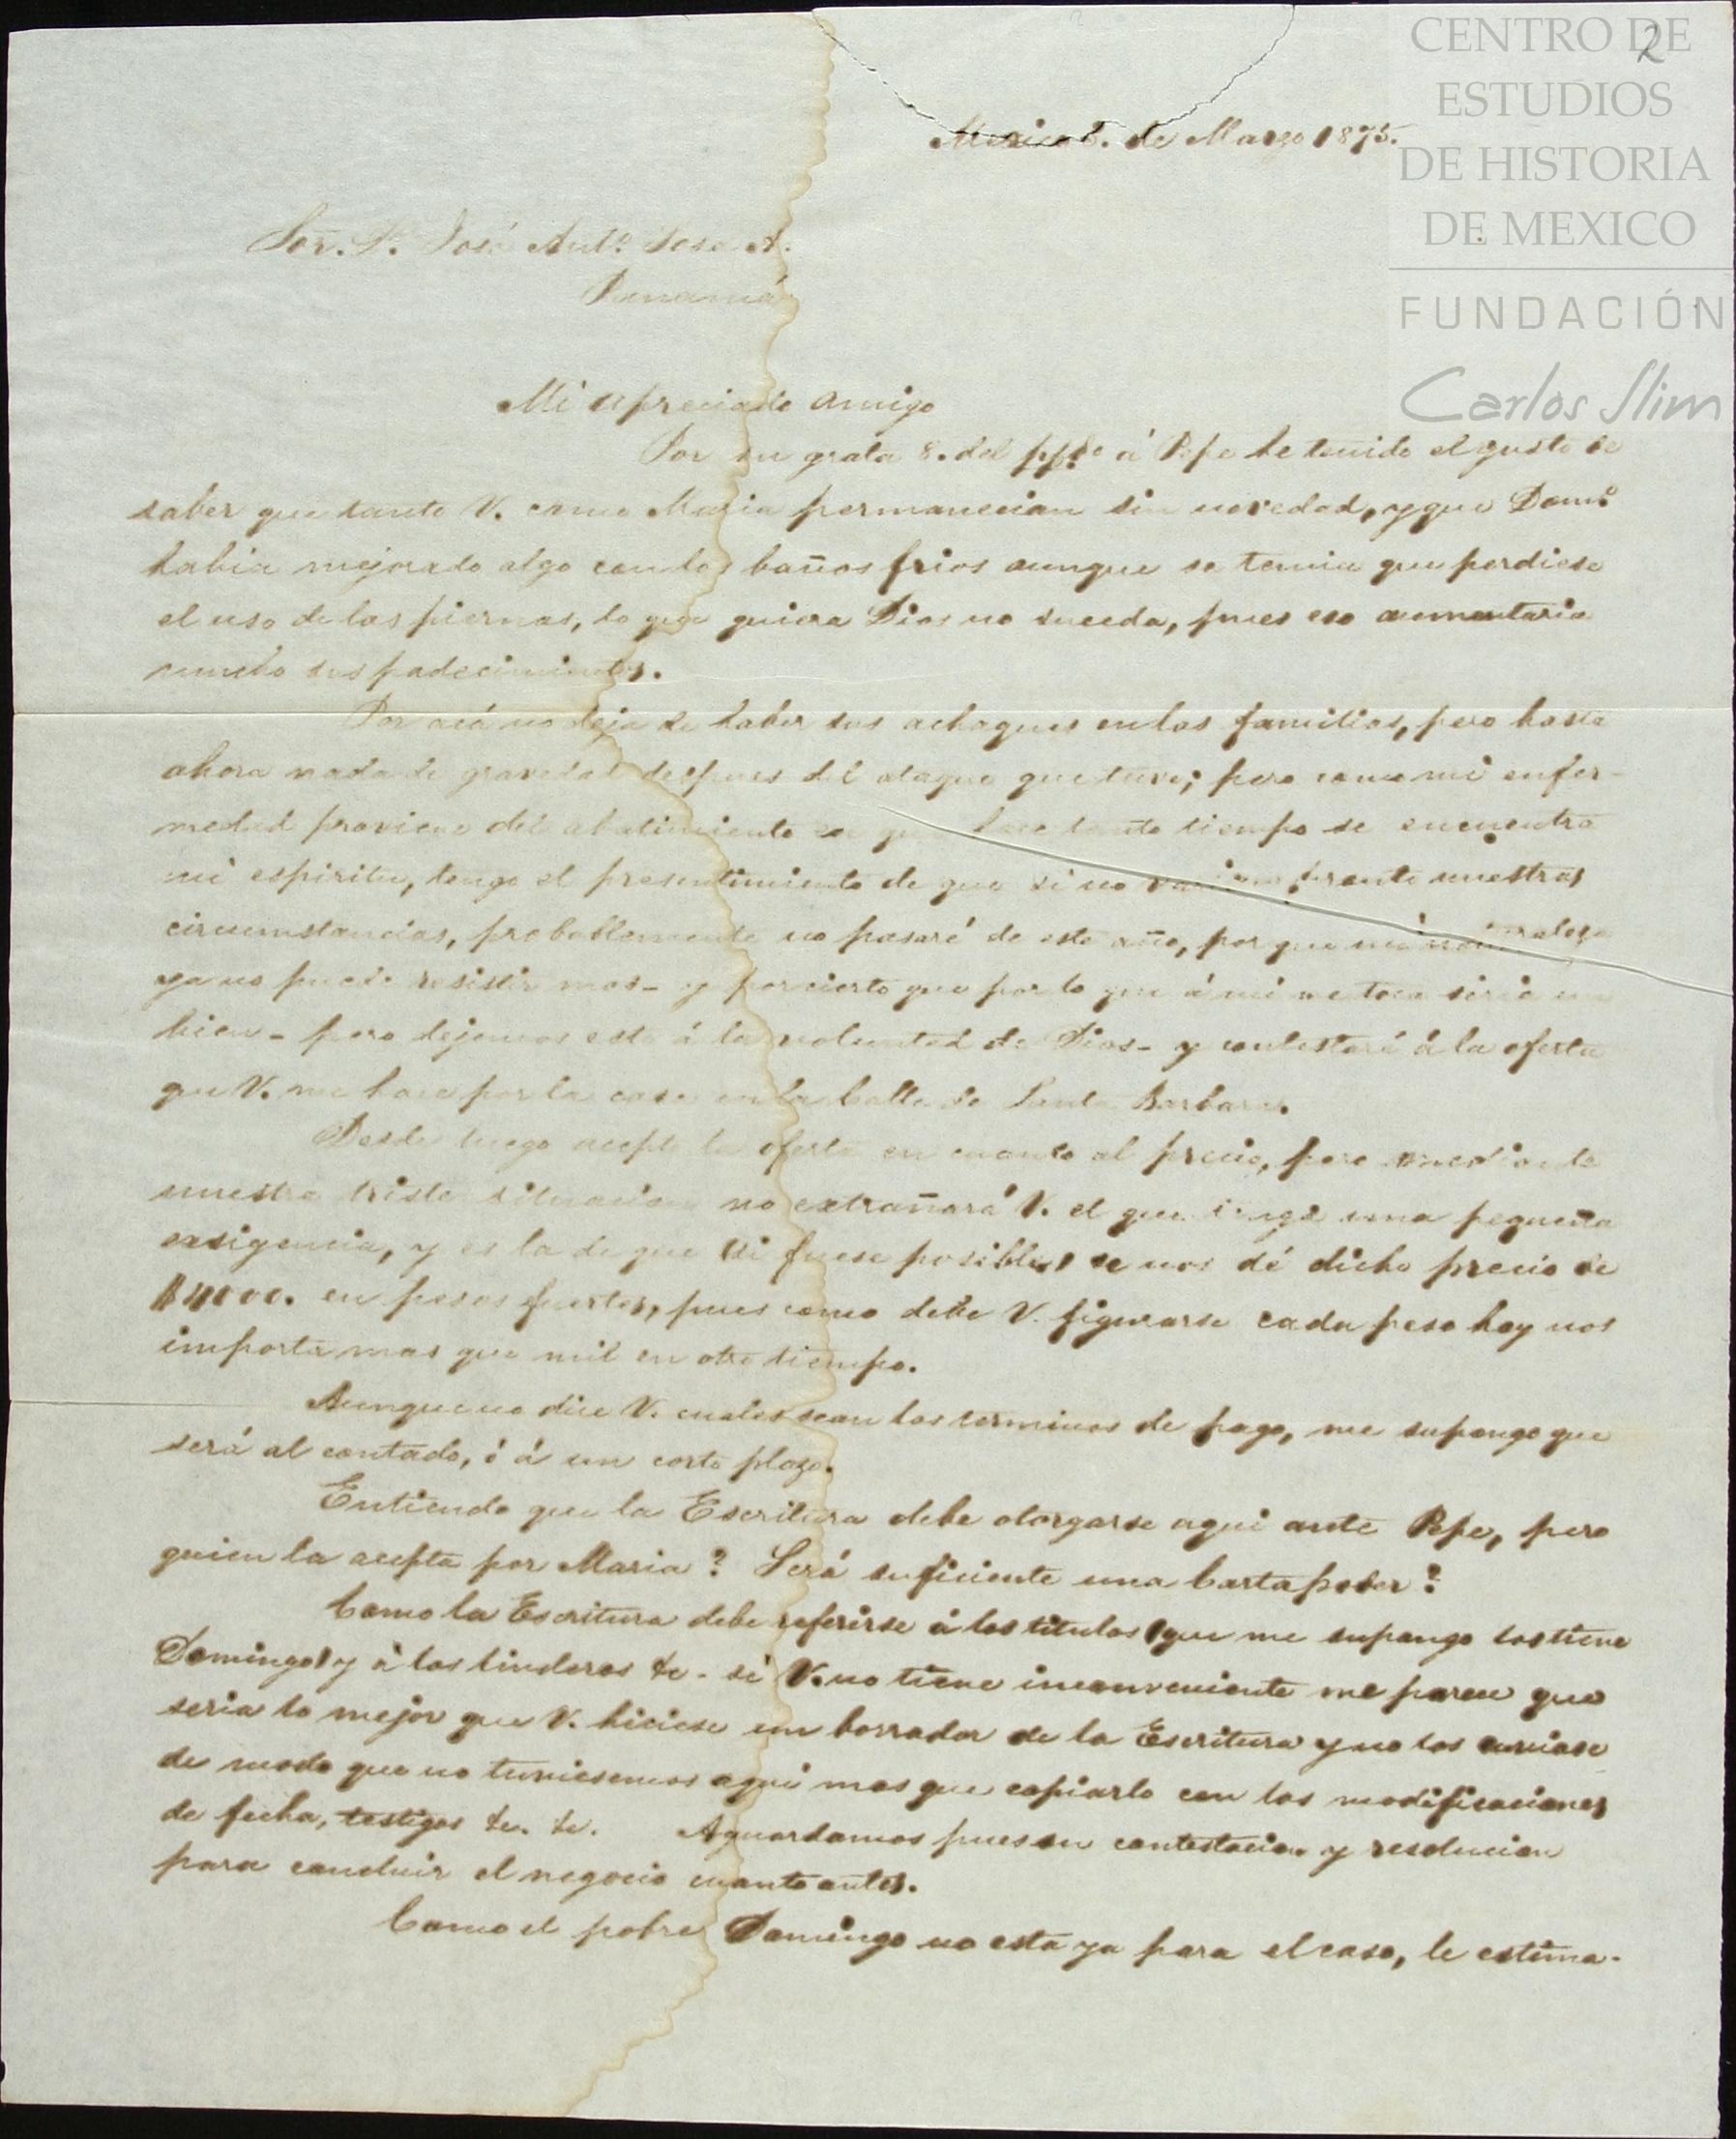 2
CENTRO DE
ESTUDIOS
DE HISTORIA
DE MEXICO
FUNDACIÓN
Carlos Slim
Mexico 5. de Marzo 1875.
Sor. D. José Anto. Sosa A.
Panamá
Mi apreciado amigo
Por su grata 8. del ppdo á Pepe he tenido el gusto de
saber que tanto V. como Maria permanecian sin novedad, y que Domo
habia mejorado algo con los baños frios aunque se temia que perdiese
el uso de las piernas, lo que quiera Dios no suceda, pues eso aumentaria
mucho sus padecimientos.
Por acá no deja de haber sus achaques en las familias, pero hasta
ahora nada de gravedad despues del ataque que tuve; pero como mi enfer-
medad proviene del abatimiento en que hace tanto tiempo se encuentra
mi espiritu, tengo el presentimiento de que si no varian pronto nuestras
circumstancias, probablemente no pasaré de este año, por que mi naturaleza
ya no puede resistir mas- y por cierto que por lo que á mi me toca seria un
bien- pero dejemos esto á la voluntad de Dios- y contestaré á la oferta
que V. me hace por la casa en la Calle de Santa Barbara.
Desde luego acepto la oferta en cuanto al precio, pero mediante
nuestra triste situacion no extrañará V. el que tenga una pequeña
exsigencia, y es la de que si fuese posible, se nos dé dicho precio de
$4000. en pesos fuertes, pues como debe V. figurarse cada peso hoy nos
importa mas que mil en otro tiempo.
Aunque no dice V. cuales sean los terminos de pago, me supongo que
será al contado, ó á un corto plazo.
Entiendo que la Escritura debe otorgarse aqui ante Pepe, pero
quien la acepta por Maria? Será suficiente una Carta poder?
Como la Escritura debe referirse á los titulos (que me supongo los tiene
Domingo) y á los linderos &c- si V. no tiene inconveniente me parece que
seria lo mejor que V. hiciese un borrador de la Escritura y no los enviase
de modo que no tuviesemos aqui mas que copiarlo con las modificaciones
de fecha, testigos &c. &c. Aguardamos pues su contestacion y resolucion
para concluir el negocio cuanto antes.
Como el pobre Domingo no esta ya para el caso, le estima-